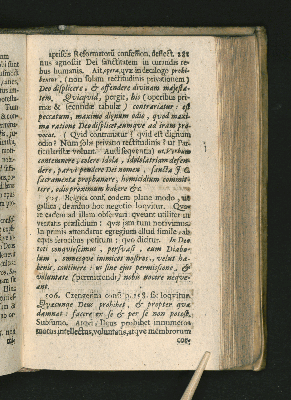 apriscis Reformatorū confession. deflect. 281
nus agnoscit Dei sanctitatem in jurandis re-
bus humanis. Ait, opera, quæ in decalogo prohi-
bentur, (non solum rectitudinis privationem)
Deo displicere, & offendere divinam majesta-
tem. Quicquid, pergit, his (operibus pri-
mæ & secundæ tabulæ) contrarium: est
peccatum, maximo dignum odio, quod maxi-
ma ratione Deo displicet, eumque ad iram pro-
vocat. (Quod contrariatur? quid est dignum
odio? Num solis privatio rectitudinis? ut Par-
ticularistæ volunt. Audi sequentia) ut, Verbum
contemnere, colere idola, idololatriam defen-
dere, parvi pendere Dei nomen, sancta &
sacramenta prophanare, homicidium commit-
tere, odio proximum habere &c.
505. Belgica conf. eodem plane modo, ut
Gallica, de audito hoc negotio loquitur. Quare
ex eadem ad illam observari queunt
veritatis præsidium: quæ jam tum notavimus.
In primis attendatur egregium illud simile
equis ferocibus petitum: quo dicitur. In Deo
toti conquiescimus, persuasi, eum Diabo-
lum, omnesque inimicos nostros, velut ha-
benis, continere: ut sine ejus permissione, &
voluntate (permittendi) nobis nocere neque-
ant.
506. Czengerina conf. p. 158. sic loquitur.
Quæcunque Deus prohibet, & propter quæ
damnat: facere ex se & per se non potest.
Subsumo. Atqui, Deus prohibet innumeros
motus intellectus, voluntatis, atque membrorum
cor-